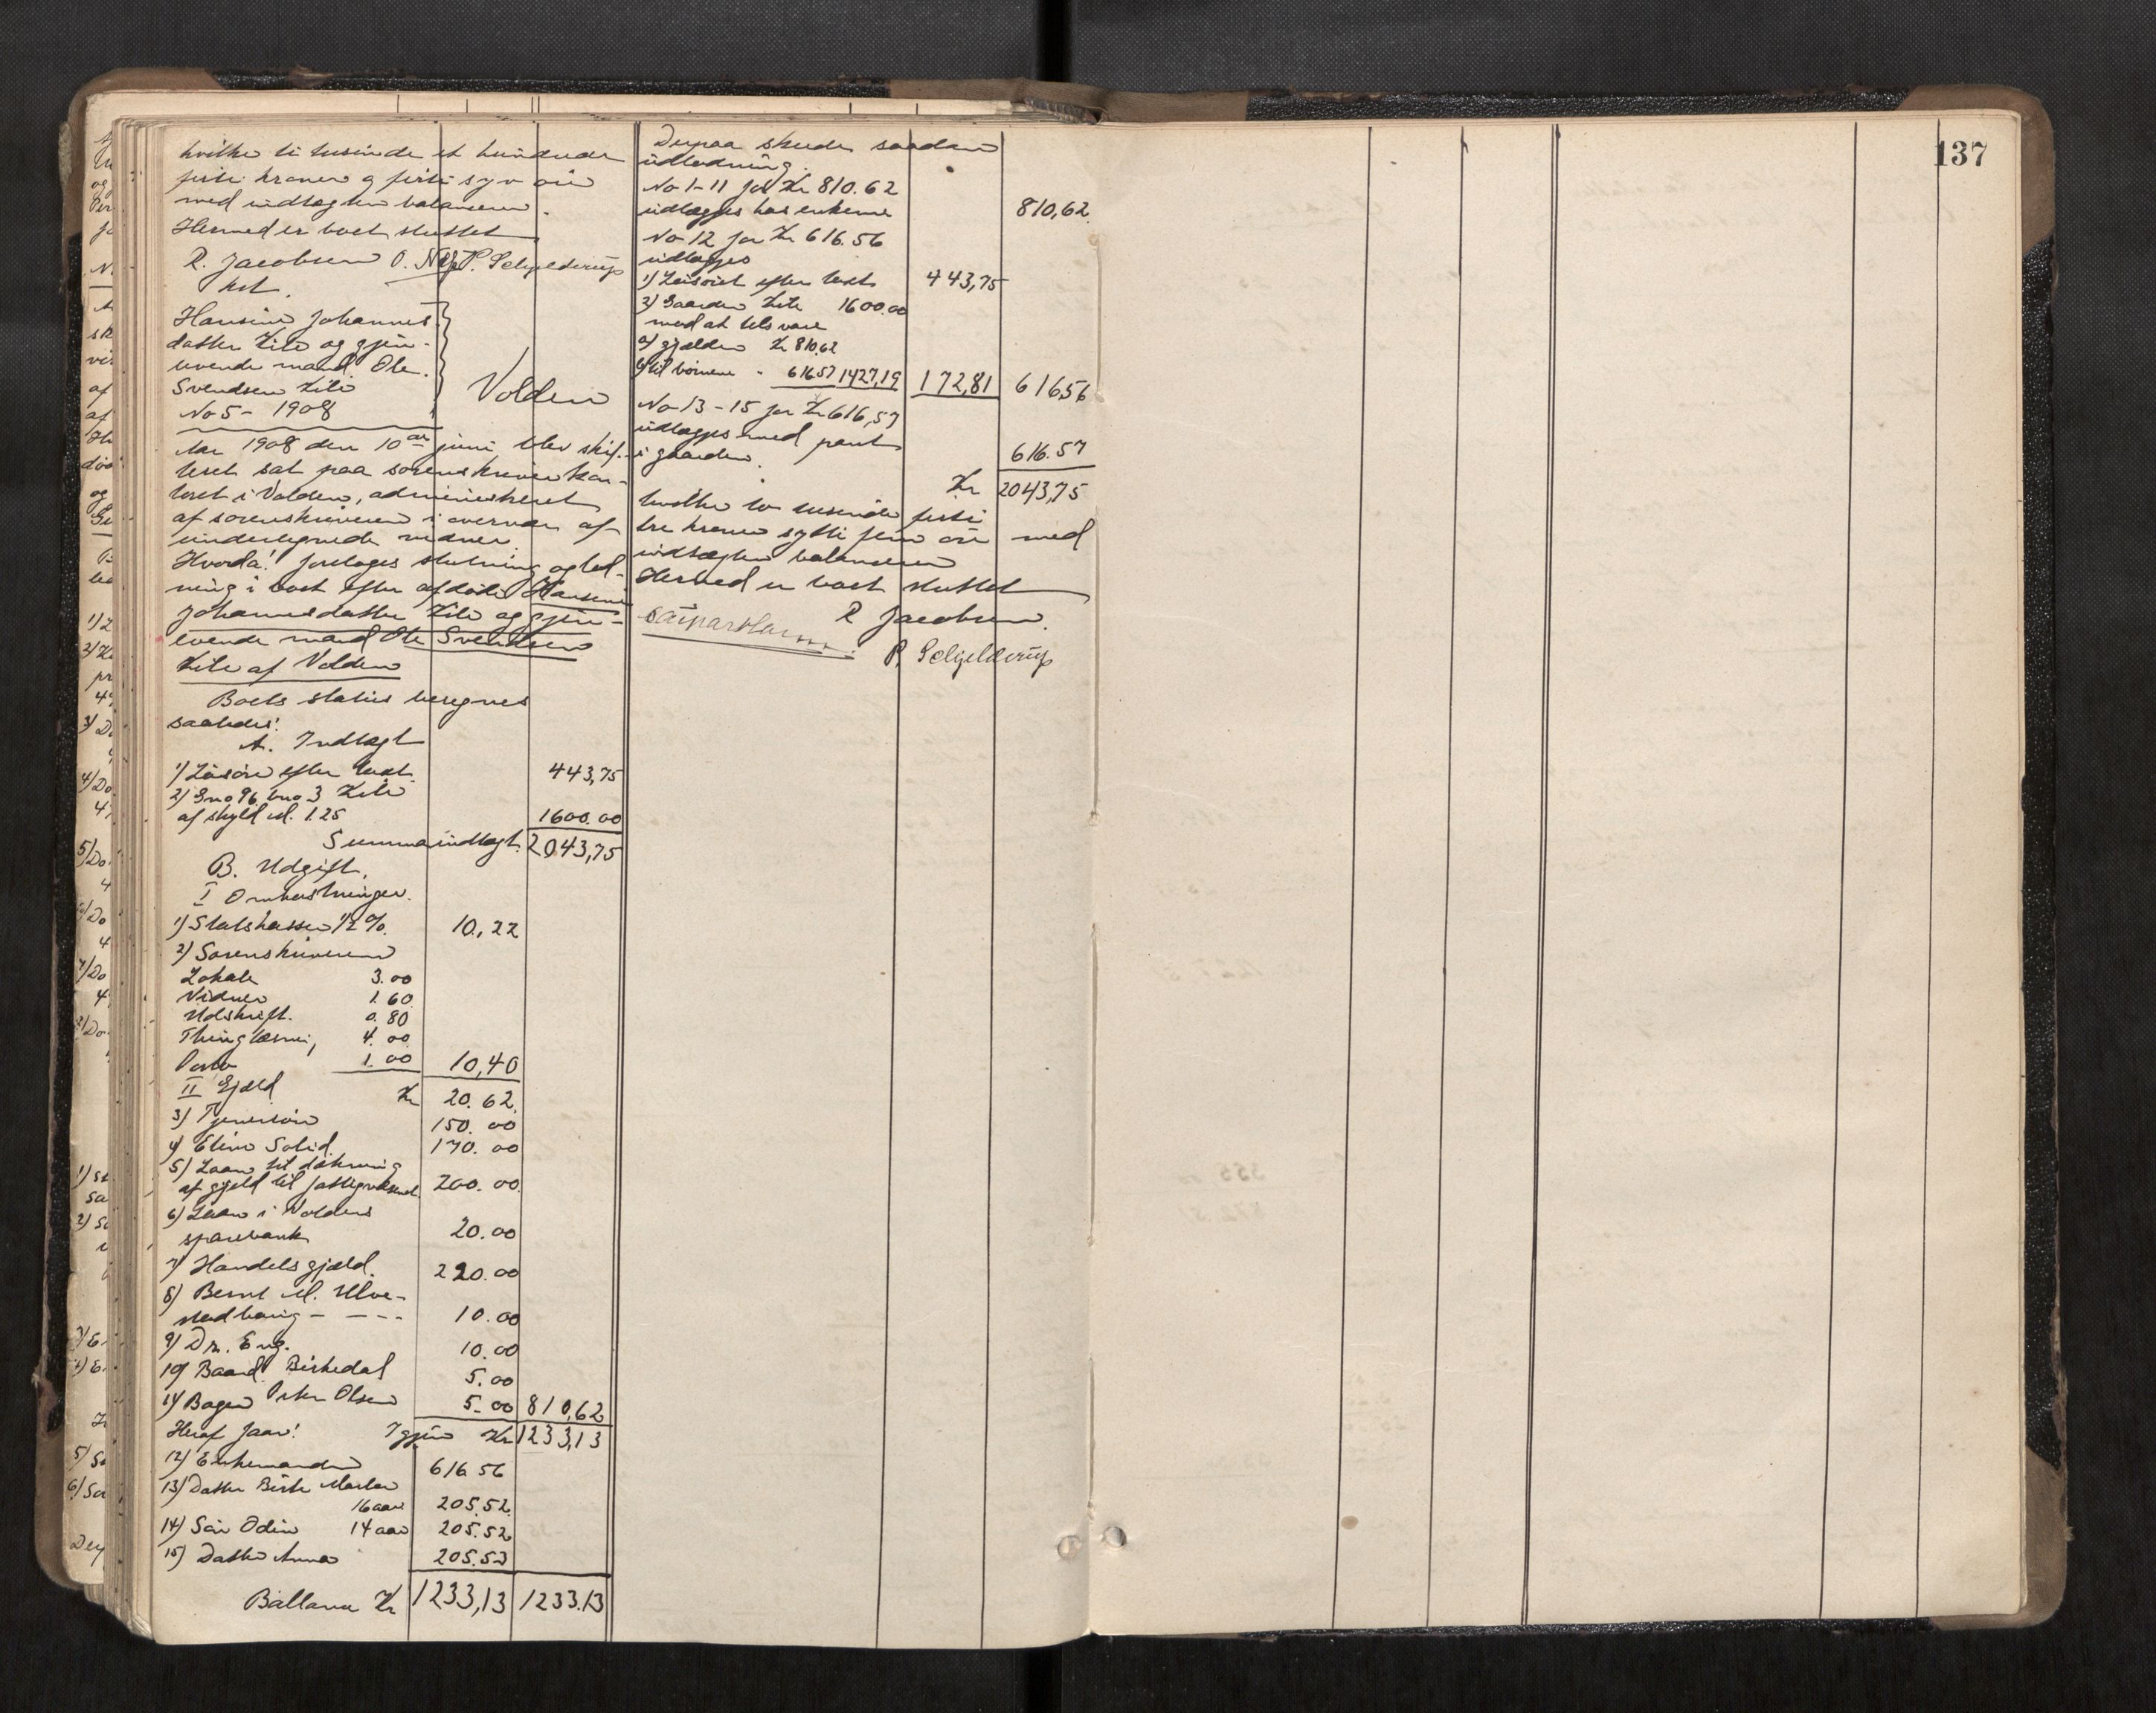 hvilke ti tusinde et hundrede
firti kroner og firti syv øre
med indtægten balancerer.
Hermed er boet sluttet
R. Jacobsen O. P. Schjelderup
kst.
Hansine Johannes-
datter Kile og gjen-
levende mand Ole
Svendsen Kile
No 5 - 1908
Volden
Aar 1908 den 10de juni blev skif-
teret sat paa sorenskriverkon-
toret i Volden, administreret
af sorenskriveren i overvær af
undertegnede vidner.
Hvorda! foretoges slutning og lod-
ning i boet efter afdøde Hansine
Johannesdatter Kile og gjen-
levende mand Ole Svendsen
Kile af Volden
Boets status beregnes
saaledes:
A. Indtægt
1) Løsøre efter takst. 443,75
2) Gno 96 bno 3 Kile
af skyld M. 1.25 1600.00
Summa indtægt. 2043,75
B. Udgift.
I Omkostninger.
1) Statskassen ½ %. 10,22
2) Sorenskriveren
Lokale 3.00
Vidner 1.60
Udskrift. 0.80
Thinglæsni, 4.00
Porto 1.00 10,40
II Gjæld Kr 20.62
3) Tjenerløn 150.00
4) Eline Solid. 170.00
5) Laan til dækning
af gjæld til fattigvæsenet 200.00
6) Laan i Voldens
sparebank 20.00
7) Handelsgjæld. 220.00
8) Bernt M. Ulve-
stadhaug - - - - 10.00
9) Dr. Eng. 10.00
10) Baard Birkedal 5.00
11) Bager Peter Olsen 5.00 810,62
Heraf faar! Igjen Kr 1233,13
12) Enkemanden 616.56
13) Datter Birte Marta
16 aar 205.52
14) Søn Odin 14 aar 205.52
15) Datter Anna 205.53
Ballance Kr 1233,13 1233.13
Derpaa skeder saadan
udlodning.
No 1-11 for Kr 810.62
udlægges hos enkem. 810,62
No 12 for Kr 616.56
udlægges
1) Løsøret efter takst 443,75
2) Gaarden Kile 1600.00
mod at tilsvare
a) gjælden Kr 810.62
b) til børnene - 616.57 1427,19 172,81 616,56
No 13-15 for Kr 616,57
udlægges med pant
i gaarden. 616.57
Kr 2043,75
hvilke to tusinde firti
tre kroner sytti fem øre med
indtægten balancerer
Hermed er boet sluttet
R Jacobsen.
P. Schjelderup
137